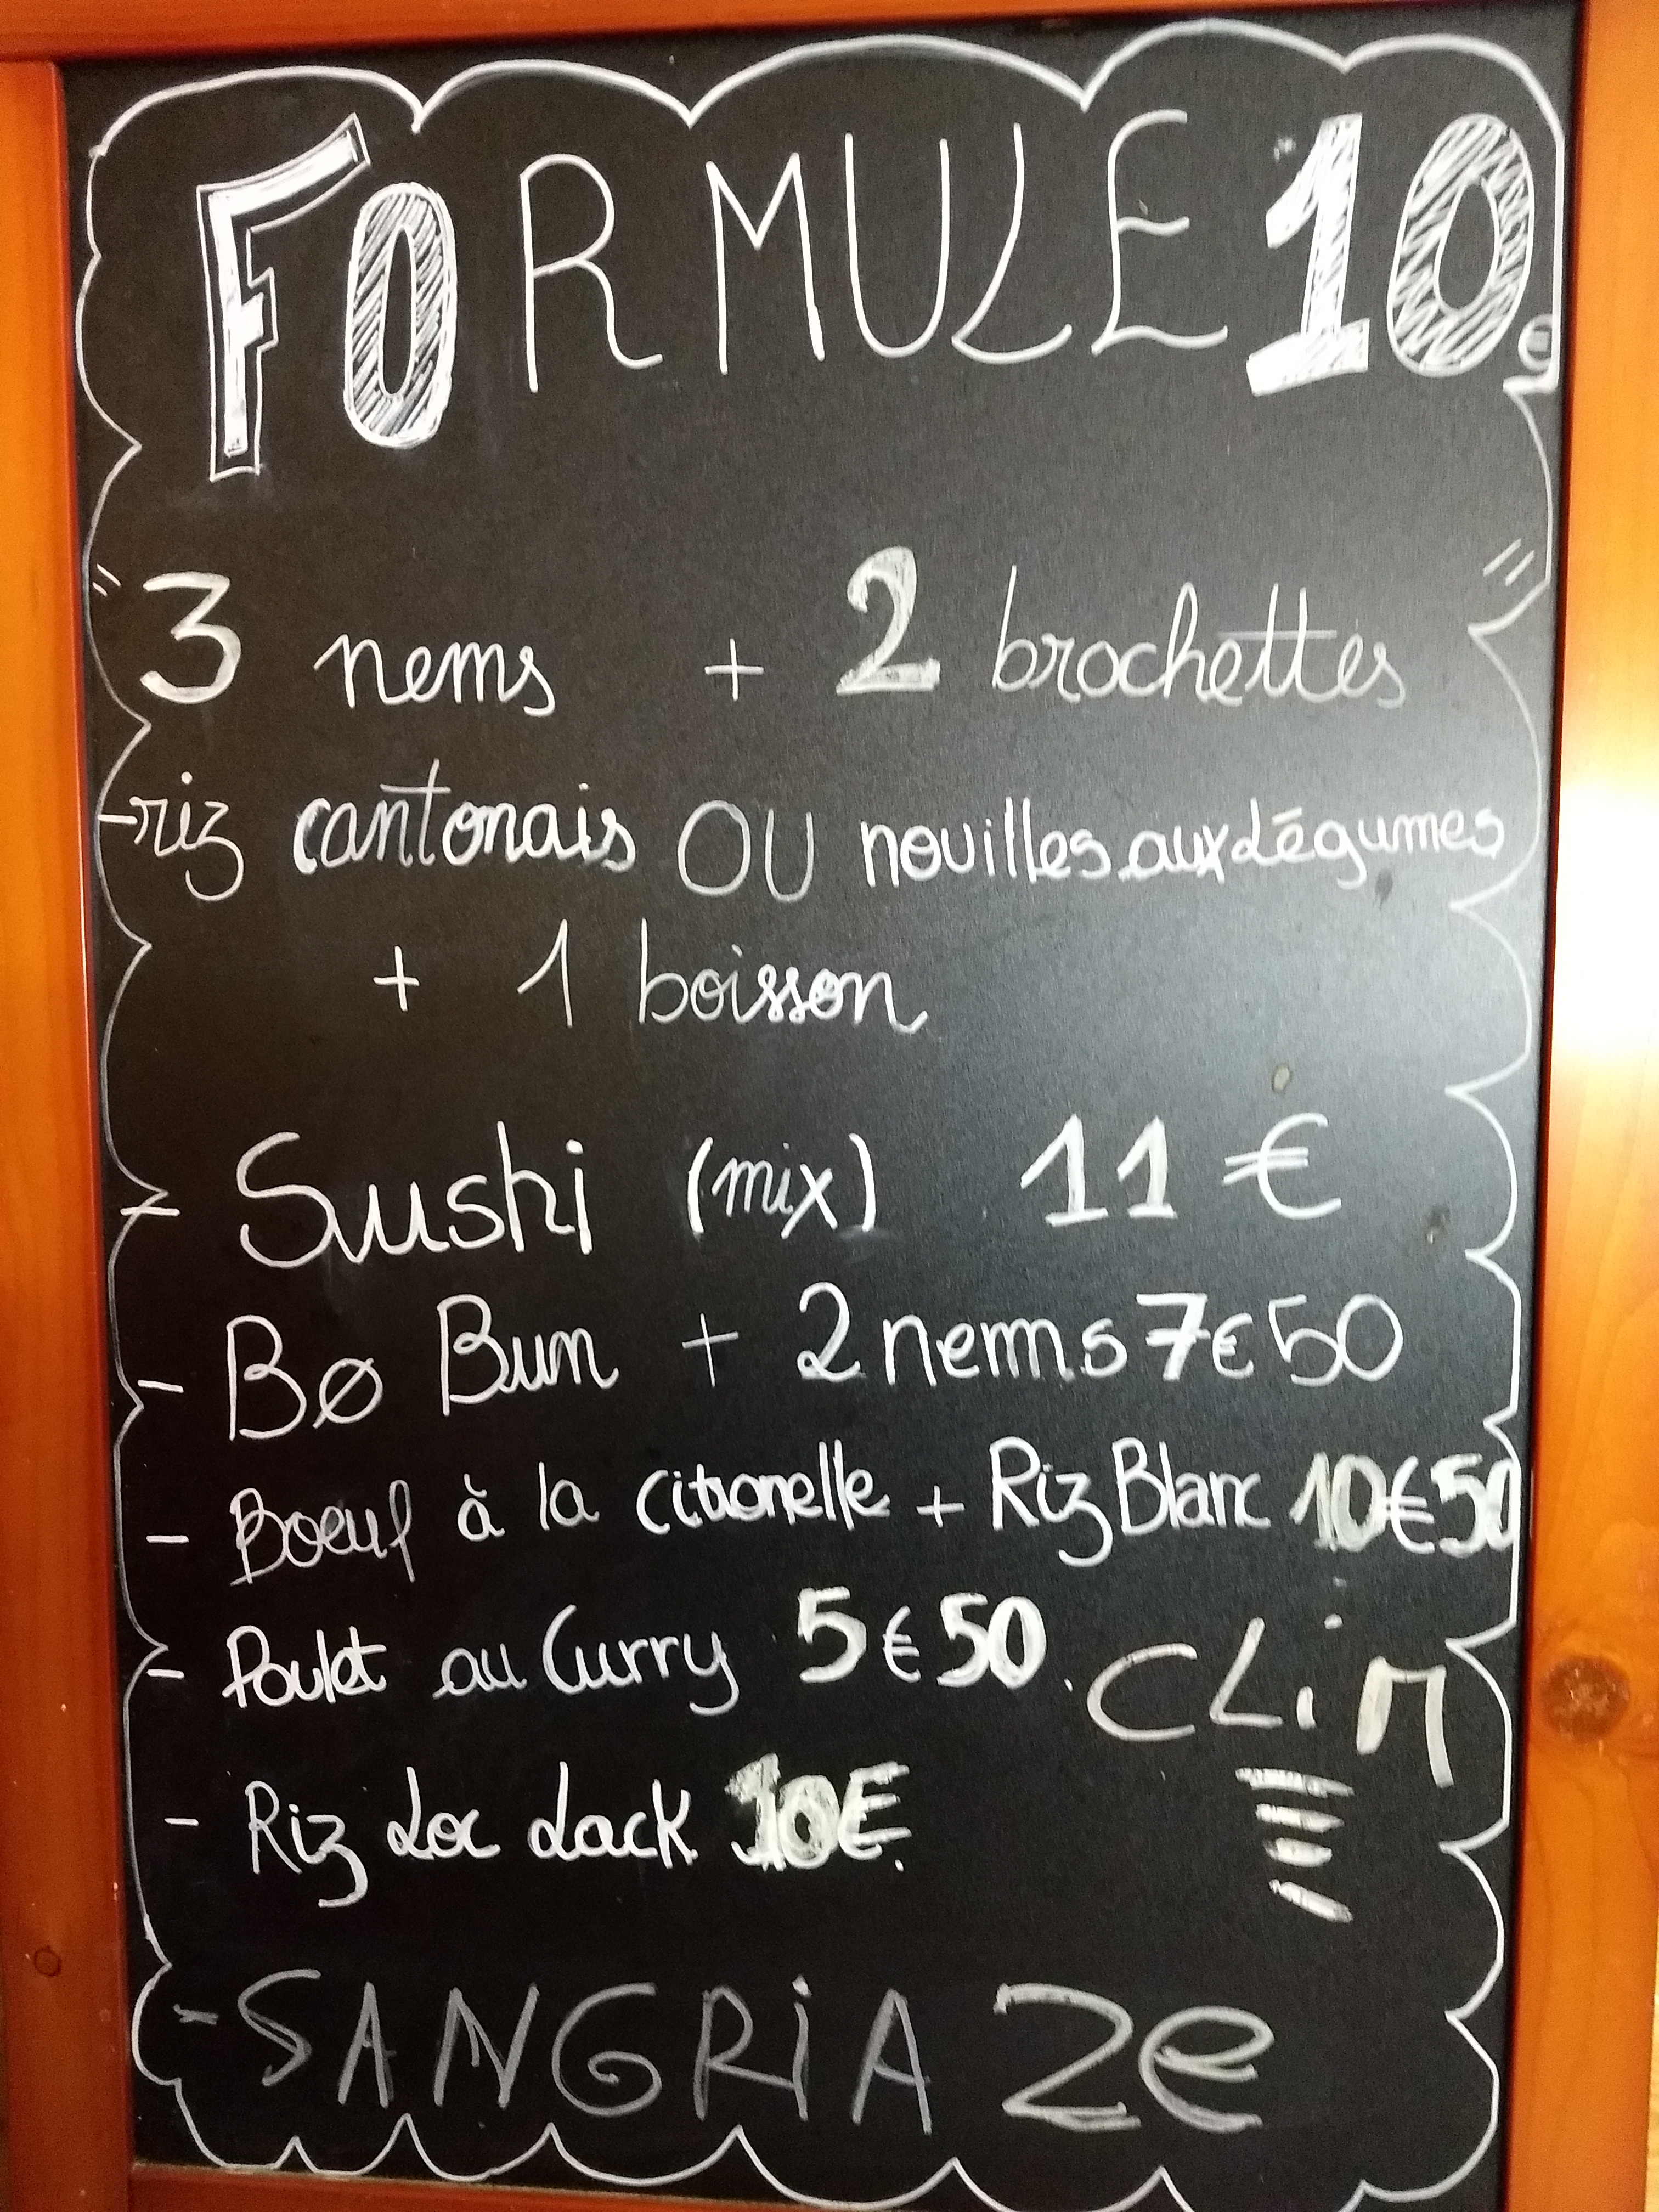 FORMULE 10€
3 nems + 2 brochettes
-riz cantonais OU nouilles aux légumes
+ 1 boisson
- Sushi (mix) 11 €
- Bø Bun + 2 nems 7€50
- Boeuf à la citronelle + Riz Blanc 10€50
- Poulet au Curry 5€50.
CLiM
- Riz Loc Lack 10€.
- SANGRiA 2e